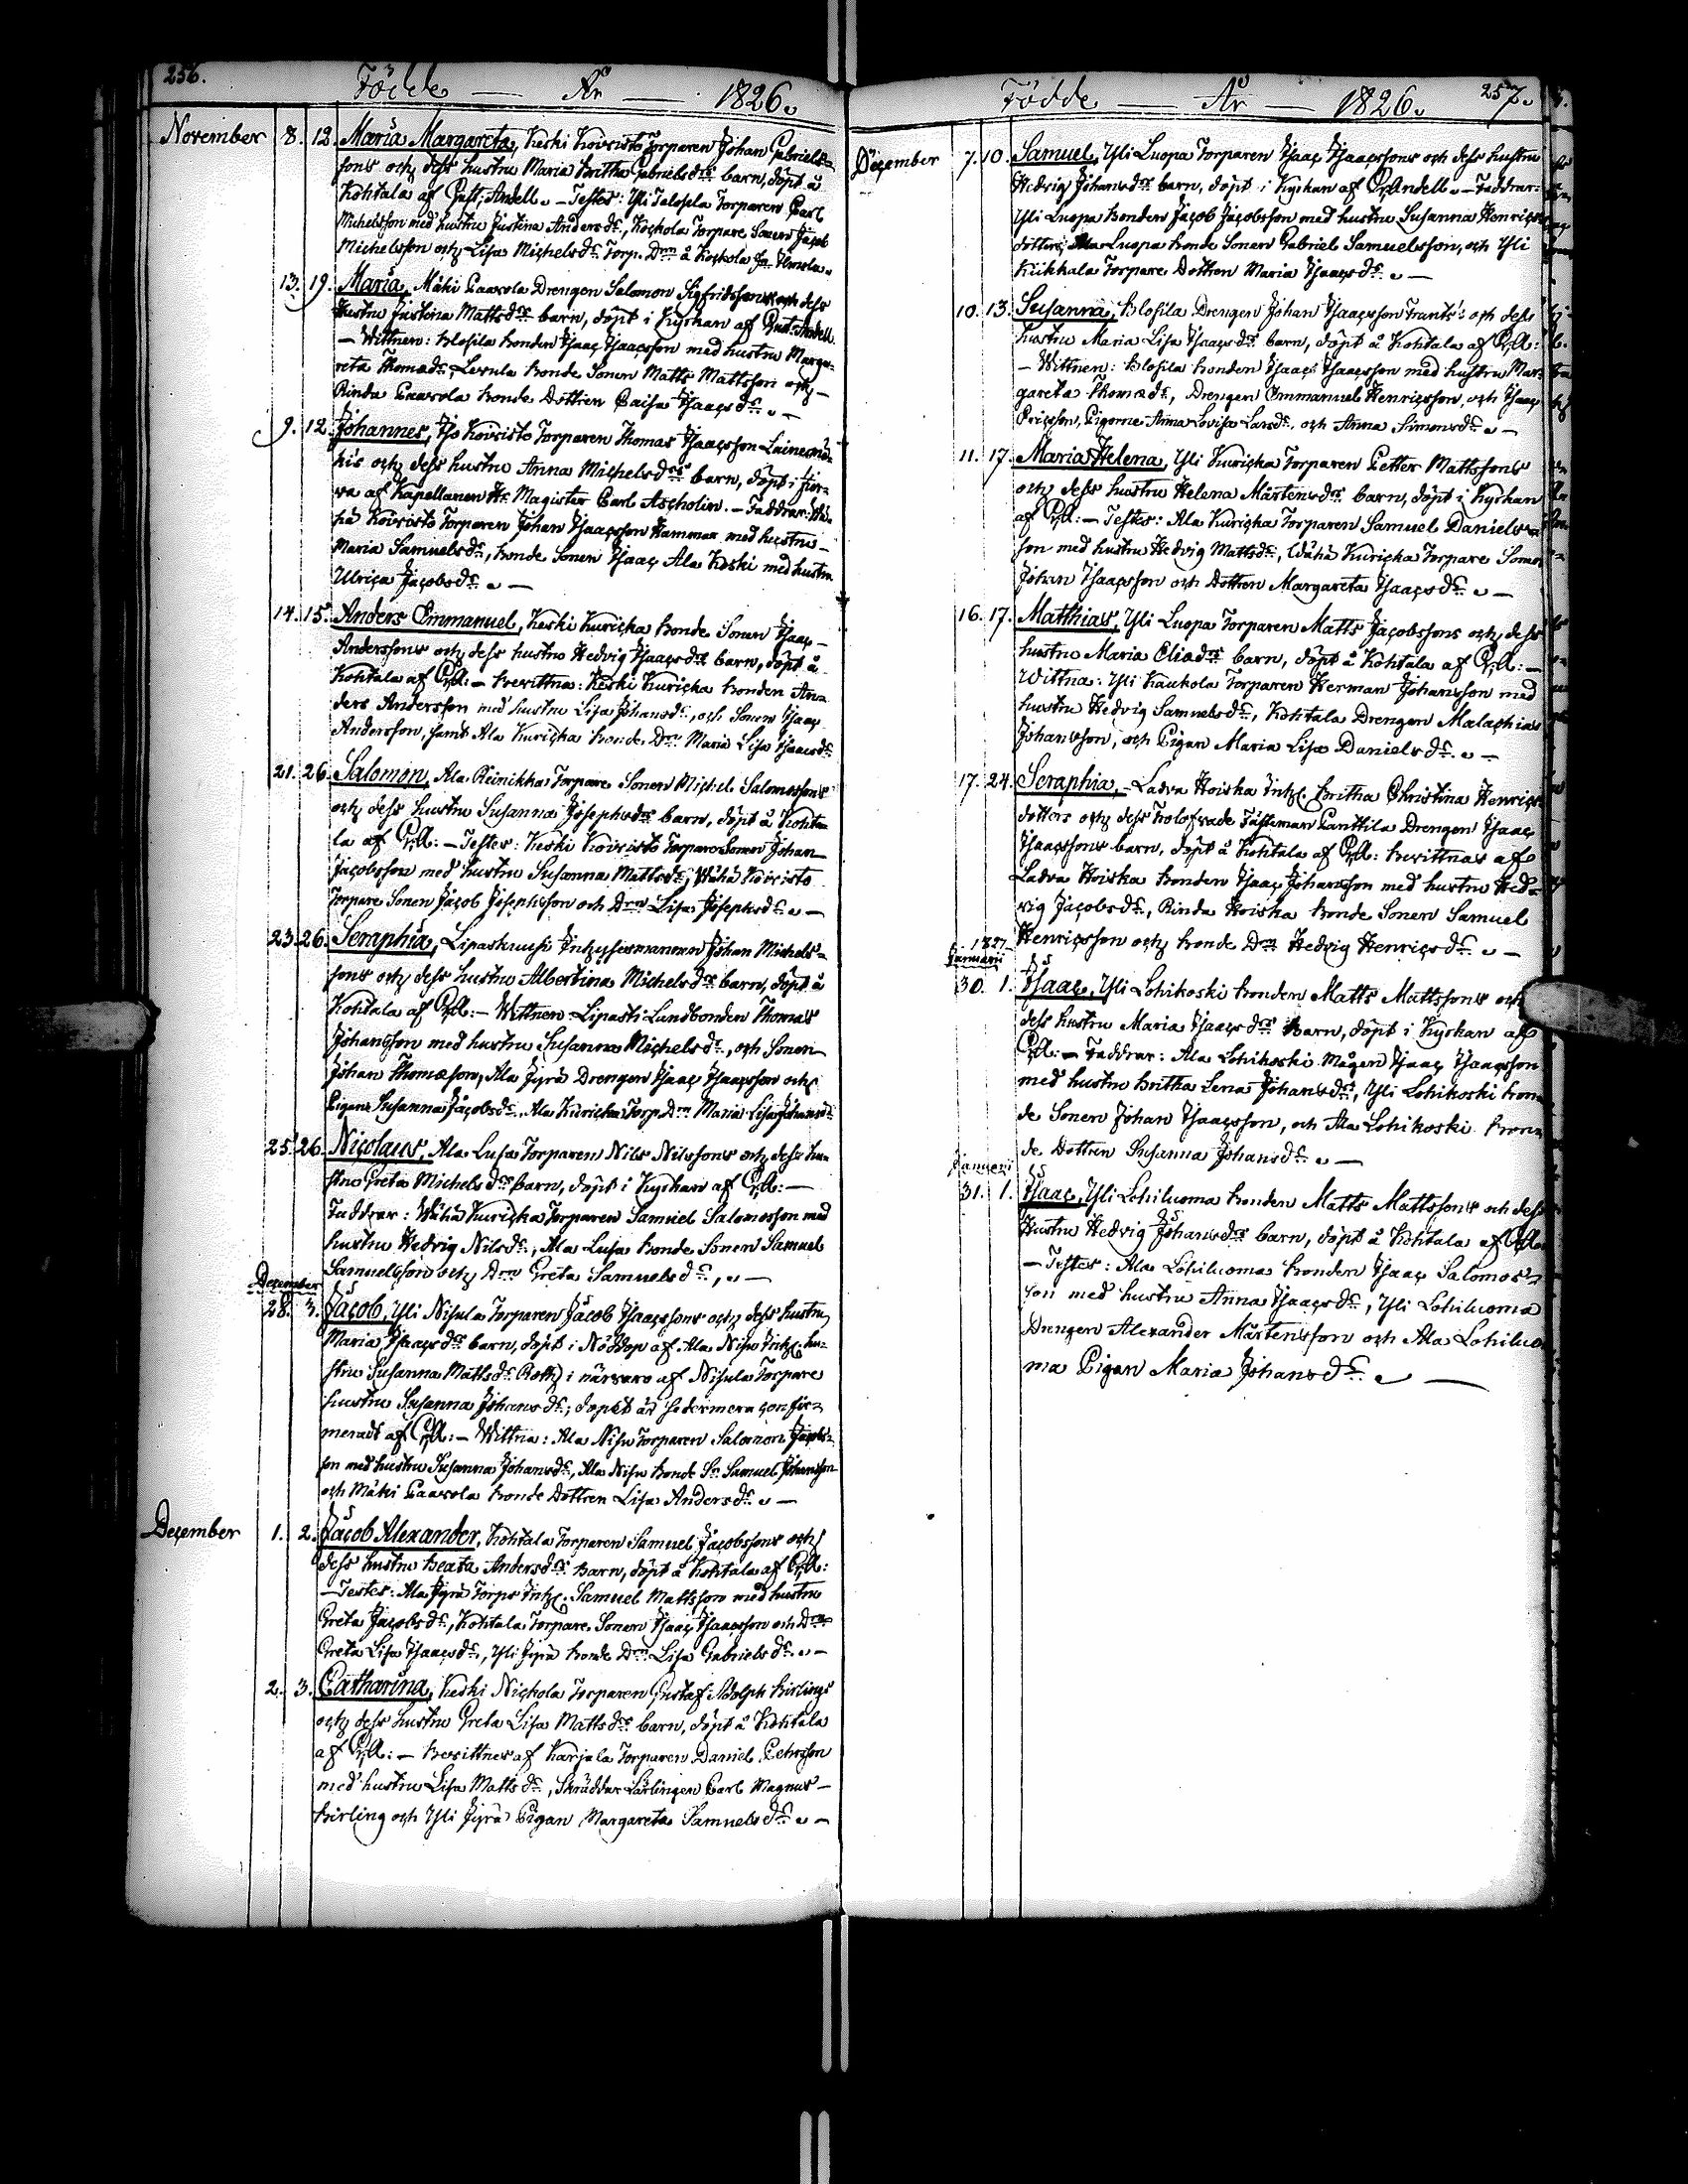 256.
Födde — År — 1826.
November 8. 12. Maria Margareta, Keski Koivisto Torparen Johan Gabriels-
sons och dess hustru Maria Britha Gabrielsdrs barn, döpt å
Kohtala af Gust. Andell. — Testes: Yli Talosela Torparen Carl
Michelsson med hustru Justina Andersdr, Kockola Torpare Sonen Jacob
Michelsson och Lisa Michelsdr Torp. Drn å Kockola
13. 19. Maria, Mäki Paavola Drengen Salomon Sigfridssons och dess
Hustru Justina Mattsdrs barn, döpt i Kyrkan af Gust. Andell.
— Wittnen: Blosila bonden Isaac Isaacsson med hustru Marga-
reta Thomædr, Levula bonde Sonen Matts Mattsson och —
Rinda Paavola bonde Dottren Caisa Isaacsdr. —
9. 12. Johannes, Iso Koivisto Torparen Thomas Isaacsson
och dess hustru Anna Michelsdrs barn, döpt i
af Kapellanen Hr Magister Carl Ascholin. — Faddrar: Wä-
hä Koivisto Torparen Johan Isaacsson Hammar med hustru —
Maria Samuelsdr, bonde Sonen Isaac Ala Koski med hustru
Ulrica Jacobsdr. —
14. 15. Anders Emmanuel, Keski Kuricka bonde Sonen Isaac —
Anderssons och dess hustru Hedvig Isaacsdrs barn, döpt å
Kohtala af G;A: — bevittna: Keski Kuricka bonden An-
ders Andersson med hustru Lisa Johansdr, och Sonen Isaac
Andersson, samt Ala Kuricka bonde Drn Maria Lisa Isaacsdr
21. 26. Salomon, Ala Reinikka Torpare Sonen Michel Salomossons
och dess hustru Susanna Josephsdrs barn, döpt å Kohta-
la af G;A: — Testes: Keski Koivisto Torpare Sonen Johan
Jacobsson med hustru Susanna Mattsdr, Wähä Koivisto
Torpare Sonen Jacob Josephsson och Drn Lisa Josephsdr. —
23. 26. Seraphia, Lipaskuusi Johan Michels-
sons och dess hustru Albertina Michelsdrs barn, döpt å
Kohtala af G;A: — Wittnen: Lipasti Landbonden Thomas
Johansson med hustru Susanna Michelsdr, och Sonen
Johan Thomæson, Ala Jyrä Drengen Isaac Isaacsson och
Pigan Susanna Jacobsdr, Ala Kuricka Torp. Drn Maria Lisa Johansdr
25. 26. Nicolaus, Ala Lusa Torparen Nils Nilssons och dess hu-
stru Greta Michelsdrs barn, döpt i Kyrkan af G;A: —
Faddrar: Wähä Kuricka Torparen Samuel Salomosson med
hustru Hedvig Nilsdr, Ala Lusa bonde Sonen Samuel
Samuelsson och Drn Greta Samuelsdr, —
December
28. 3. Jacob, Yli Nisula Torparen Jacob Isaacssons och dess hustru
Maria Isaacsdrs barn, döpt i Nöddop af Ala Nisu Inhys. hu-
stru Susanna Mattsdr Roth i närvaro af Nisula Torpare
hustru Susanna Johansdr; dopet är sedermera confir-
meradt af G;A: — Wittna: Ala Nisu Torparen Salomon Jacobs-
son med hustru Susanna Johansdr, Ala Nisu bonde Sn Samuel Johansson
och Mäki Paavola bonde Dottren Lisa Andersdr. —
December 1. 2. Jacob Alexander, Kohtala Torparen Samuel Jacobssons och
dess hustru Beata Andersdrs Barn, döpt å Kohtala af G;A:
— Testes: Ala Jyrä Torps Inhys. Samuel Mattsson med hustru
Greta Jacobsdr, Kohtala Torpare Sonen Isaac Isaacsson och Drn
Greta Lisa Isaacsdr, Yli Jyrä bonde Drn Lisa Gabrielsdr. —
2. 3. Catharina, Keski Nickola Torparen Gustaf Adolph Birlings
och dess hustru Greta Lisa Mattsdrs barn, döpt å Kohtala
af G;A: — bevittnes af Karjala Torparen Daniel Pehrsson
med hustru Lisa Mattsdr, Skräddar Lärlingen Carl Magnus —
Birling och Yli Jyrä Pigan Margareta Samuelsdr. —
Födde — År — 1826. 257.
December 7. 10. Samuel, Yli Luopa Torparen Isaac Isaacssons och dess hustru
Hedvig Johansdrs barn, döpt i Kyrkan af G;Andell. — Faddrar:
Yli Luopa bonden Jacob Jacobsson med hustru Susanna Henrics
dotter, Ala Luopa bonde Sonen Gabriel Samuelsson, och Yli
Kiikkala Torpare Dottren Maria Isaacsdr. —
10. 13. Susanna, Blosila Drengen Johan Isaacsson Frants's och dess
hustru Maria Lisa Isaacsdrs barn, döpt å Kohtala af G;A:
— Wittnen: Blosila bonden Isaac Isaacsson med hustru Mar-
gareta Thomædr, Drengen Emmanuel Henricsson, och Isaac
Ericsson, Pigorne Anna Lovisa Larsdr, och Anna Simonsdr. —
11. 17. Maria Helena, Yli Kuricka Torparen Petter Mattssons
och dess hustru Helena Mårtensdrs barn, döpt i Kyrkan
af G;A: — Testes: Ala Kuricka Torparen Samuel Daniels-
son med hustru Hedvig Mattsdr, Wähä Kuricka Torpare Sonen
Johan Isaacsson och Dottren Margareta Isaacsdr. —
16. 17. Matthias, Yli Luopa Torparen Matts Jacobssons och dess
hustru Maria Eliædrs barn, döpt å Kohtala af G;A: —
Wittna: Yli Kaukola Torparen Herman Johansson med
hustru Hedvig Samuelsdr, Kohtala Drengen Malachias
Johansson, och Pigan Maria Lisa Danielsdr. —
17. 24. Seraphia, — Ladva Hoiska Inhys. Britha Christina Henrics-
dotters och dess trolofvade Fästeman Panttila Drengen Isaac
Isaacssons barn, döpt å Kohtala af G;A: bevittnas af
Ladva Hoiska bonden Isaac Johansson med hustru Hed-
vig Jacobsdr, Rinda Hoiska bonde Sonen Samuel
Henricsson och bonde Drn Hedvig Henricsdr. —
1827
Januarii
30. 1. Isaac, Yli Lohikoski bonden Matts Mattssons och
dess hustru Maria Isaacsdrs barn, döpt i Kyrkan af
G;A: — Faddrar: Ala Lohikoski Mågen Isaac Isaacsson
med hustru Britha Lena Johansdr, Yli Lohikoski bon-
de Sonen Johan Isaacsson, och Ala Lohikoski bon-
de Dottren Susanna Johansdr. —
Januari
31. 1. Isaac, Yli Lohiluoma bonden Matts Mattssons och dess
Hustru Hedvig Johansdrs barn, döpt å Kohtala af G;A:
— Testes: Ala Lohiluoma bonden Isaac Salomos-
son med hustru Anna Isaacsdr, Yli Lohiluoma
Drengen Alexander Mårtensson och Ala Lohiluo-
ma Pigan Maria Johansdr. —